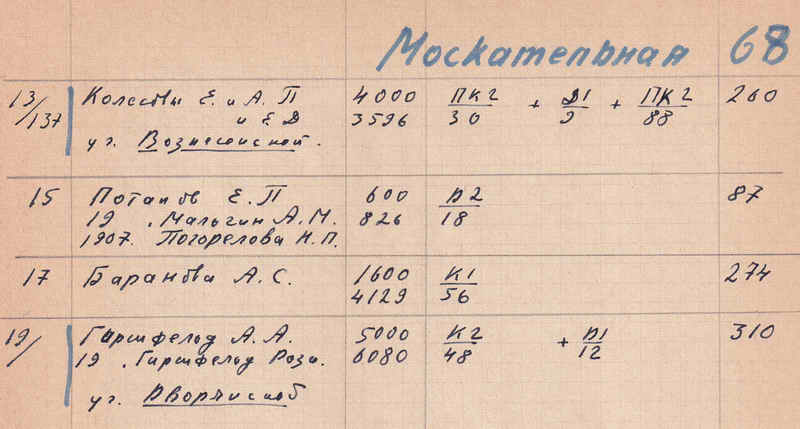 Москательная 68
13/137 Колесовы Е. и А. П 4000 ПК2/30 + Д1/9 + ПК2/88 260
и Е Д 3596
уг. Вознесенской.
15 Потапов Е. П 600 Д2/18 87
19 , Мальгин А. М. 826
1907. Погорелова Н. П.
17 Баранова А. С. 1600 К1/56 274
4129
19/ Гиршфельд А. А. 5000 К2/48 + Д1/12 310
19 , Гиршфельд Роза. 6080
уг. Дворянской